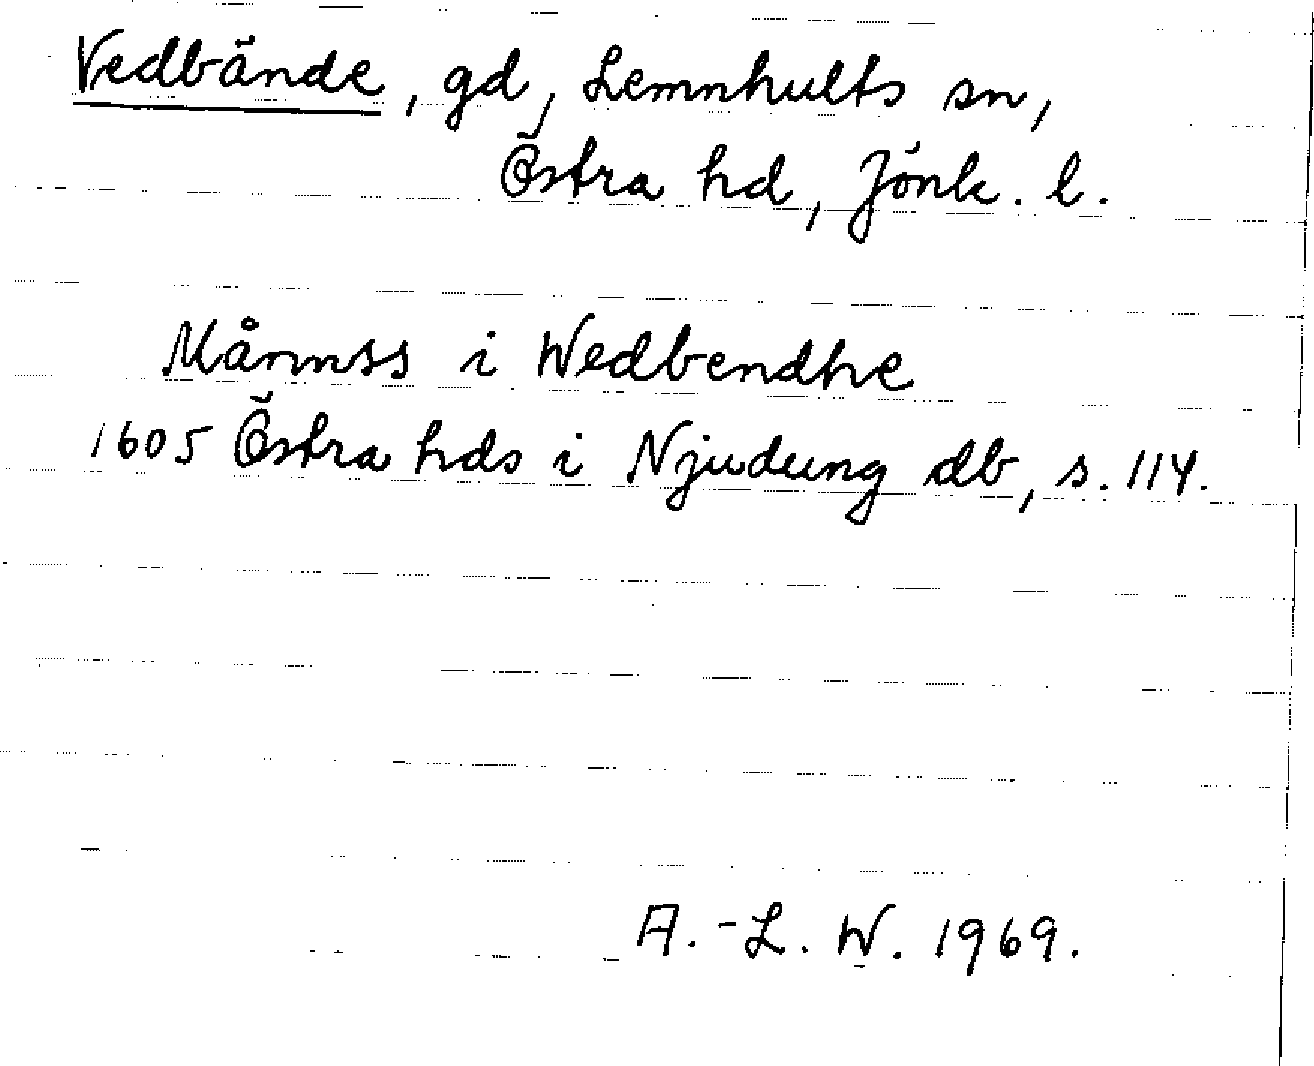 Vedbände, gd, Lemnhults sn,
Östra hd, Jönk. l.
Månnss i Wedbendhe
1605 Östra hds i Njudung db, s. 114.
A.-L. W. 1969.